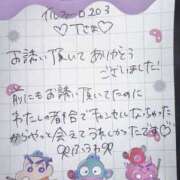 203
♡Tさま♡
お誘い頂いて ありがとう
ございました!
前にもお誘い頂いてたのに
わたしの都合でキャンセルなっちゃった
からやっと会えてうれしかったです♡